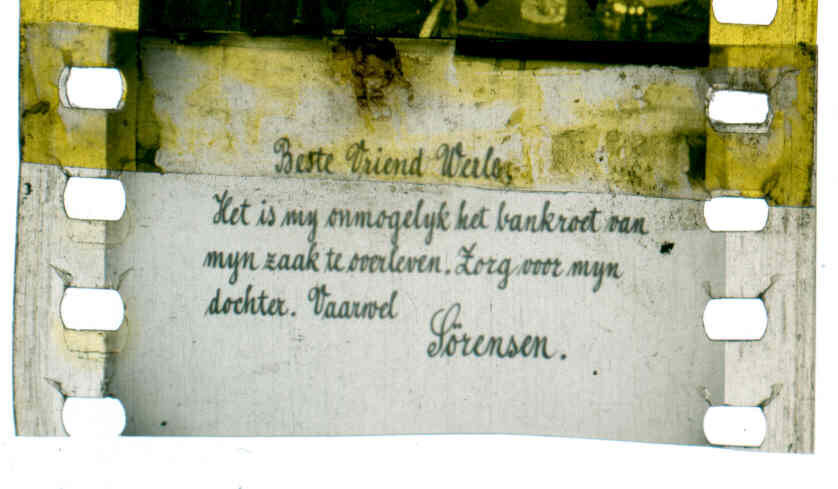 Beste Vriend Werle,
Het is my onmogelyk het bankroet van
myn zaak te overleven. Zorg voor myn
dochter. Vaarwel
Sörensen.